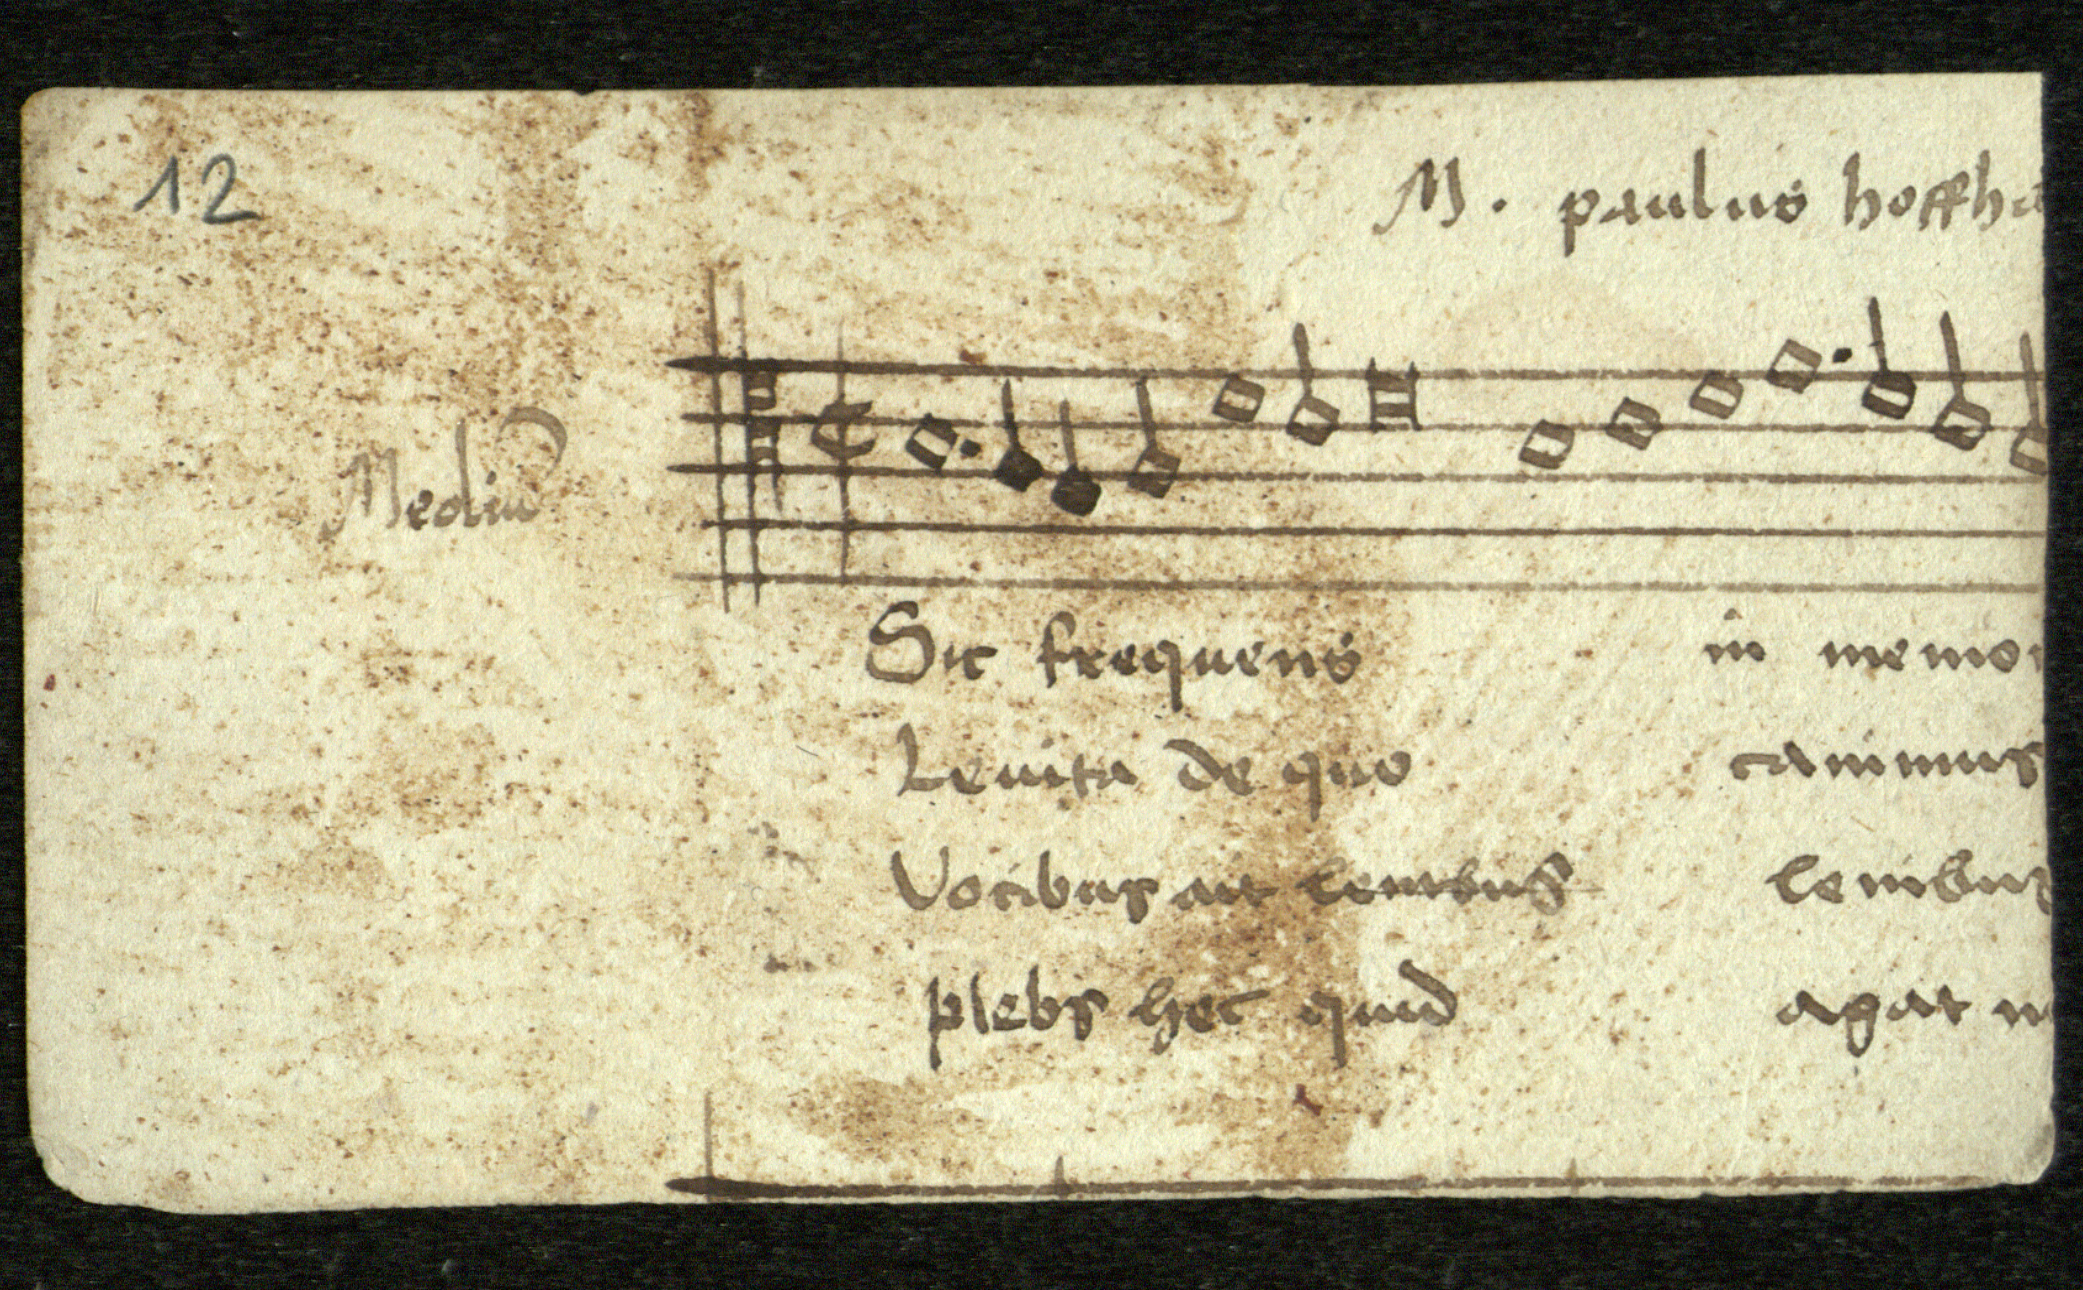 12
M. paulus hoffha
Mediu
Sit frequens in memor
Leuita de quo canimus
Vocibus ait lenibus lenibus
plebs hec quid agat